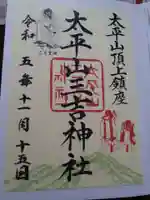 太平山頂上鎮座
太平山三吉神社
令和五年十一月十五日